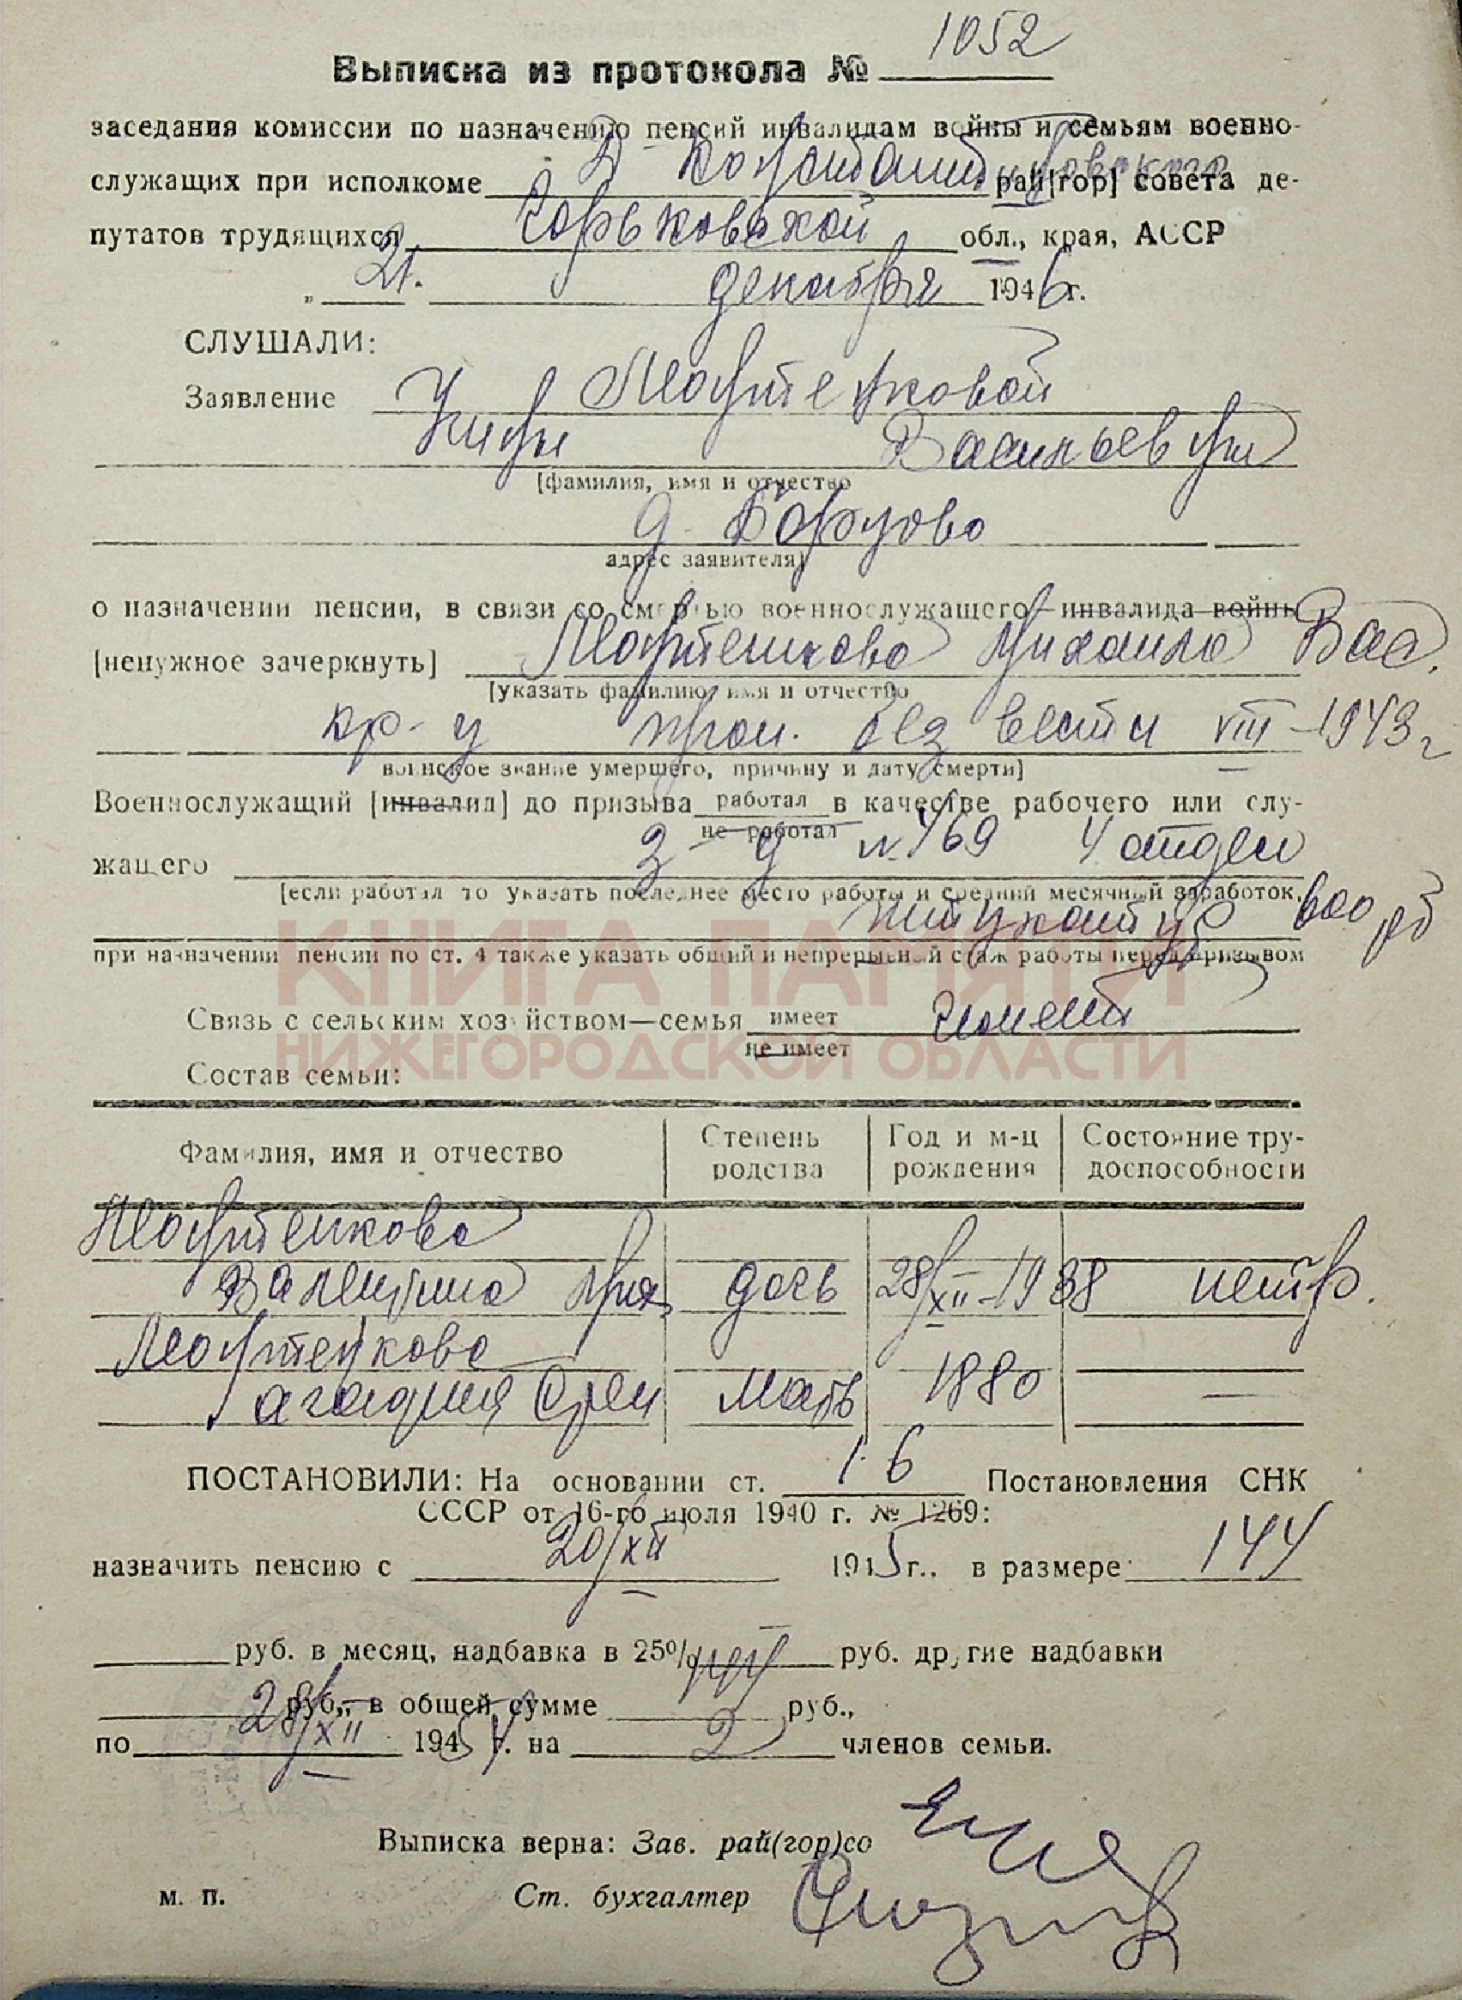 Выписка из протокола № 1052
заседания комиссии по назначению пенсий инвалидам войны и семьям военно-
служащих при исполкоме Д-Константиновского рай[гор] совета де-
путатов трудящихся Горьковской обл., края, АССР
„ 21. декабря 1946г.
СЛУШАЛИ:
Заявление Мартенковой
Васильевны
[фамилия, имя и отчество
д. Борцово
адрес заявителя]
о назначении пенсии, в связи со смертью военнослужащего—инвалида войны
[ненужное зачеркнуть] Мартенкова Михаила Вас.
[указать фамилию, имя и отчество
кр-ц проп. без вести VIII-1943г
воинское звание умершего, причину и дату смерти]
Военнослужащий [инвалид] до призыва работал в качестве рабочего или слу-
не работал
жащего з-д № 469 4 отдел
[если работал то указать последнее место работы и средний месячный заработок,
штукатур
при назначении пенсии по ст. 4 также указать общий и непрерывный стаж работы перед призывом
КНИГА ПАМЯТИ
НИЖЕГОРОДСКОЙ ОБЛАСТИ
Связь с сельским хозяйством—семья имеет имеет
не имеет
Состав семьи:
Фамилия, имя и отчество Степень родства Год и м-ц рождения Состояние трудоспособности
Мартенкова
Валентина Мих. дочь 28/XII-1938 нетр.
Мартенкова
мать 1880 —
ПОСТАНОВИЛИ: На основании ст. 1.6 Постановления СНК
СССР от 16-го июля 1940 г. № 1269:
назначить пенсию с 20/XII 1945г.. в размере 144
руб. в месяц, надбавка в 25% руб. другие надбавки
руб., в общей сумме 144 руб.,
по 28/XII 1954г. на 2 членов семьи.
Выписка верна: Зав. рай(гор)со
м. п. Ст. бухгалтер